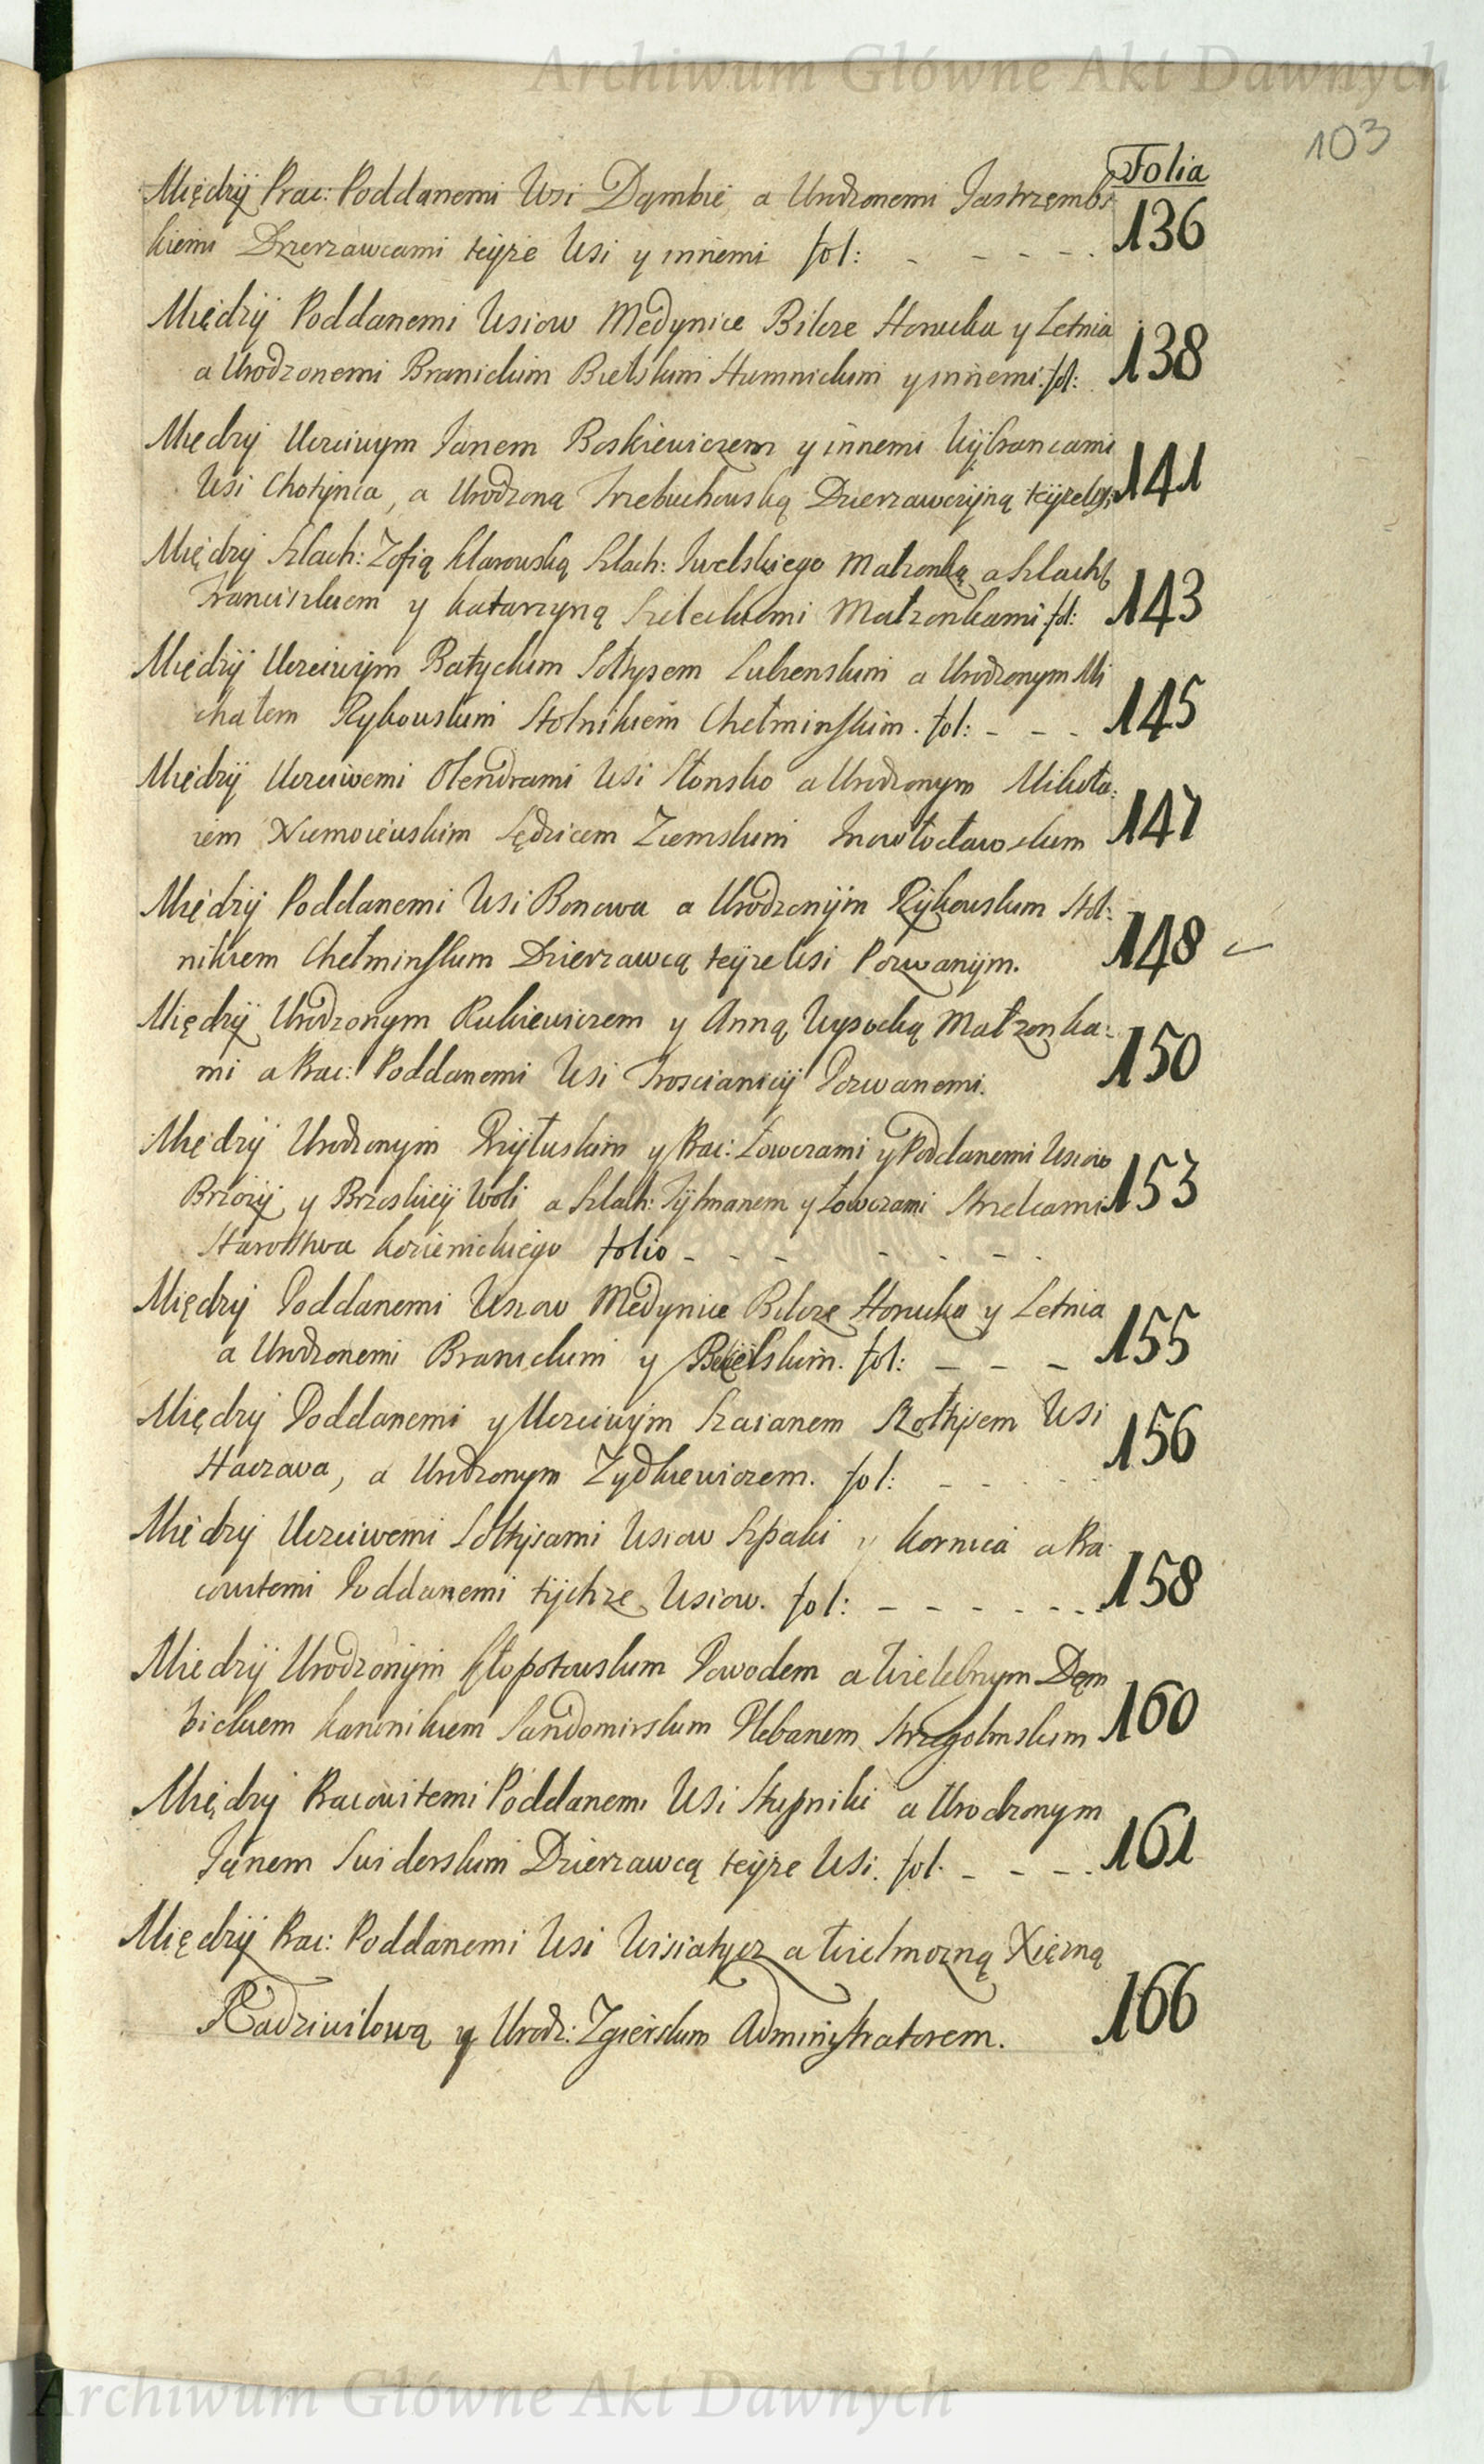 Archiwum Główne Akt Dawnych
103
Folia
Międzÿ Prac: Poddanemi Wsi Dąmbie, a Urodzonemi Jastrzembs
kiemi Dzierzawcami teÿże Wsi y innemi fol: - - - - - 136
Międzÿ Poddanemi Wsiow Medynice Bilcze Honucka y Letnia
a Urodzonemi Branickim Bielskim Humnickim y innemi. fol: 138
Między Uczciwym Janem Boskiewiczem y innemi Wÿbrancami
Wsi Chotynia, a Urodzoną Trzebuchowską Dzierzawczÿną teÿże Wsi 141
Między Szlach: Zofią Klarowską Szlach: Iwelskiego Małzonką a Szlach:
Franciszkiem y Katarzyną Szeleckiemi Małzonkami. fol: 143
Międzÿ Uczciwÿm Batyckim Sołtysem Lubenskim a Urodzonym Mi
chałem Rykowskim Stolnikiem Chełminskim. fol: - - - 145
Międzÿ Uczciwemi Olendrami Wsi Słonsko a Urodzonym Mikoła:
iem Niemoiewskim Sędzicem Ziemskim Inowłocławskim 147
Międzÿ Poddanemi Wsi Bonowa a Urodzonÿm Rÿkowskim Stol:
nikiem Chełminskim Dzierzawcą teÿże Wsi Pozwanÿm. 148
Międzÿ Urodzonym Rukiewiczem y Anną Wysocką Małzonka:
mi a Prac: Poddanemi Wsi Troscianicÿ Pozwanemi. 150
Międzÿ Urodzonym Przÿłuskim y Prac: Łowczami y Poddanemi Wsiow
Brzozÿ y Brzoskieÿ Woli a Szlach: Tÿlmanem y Łowczami Strzelcami 153
Starostwa Kozienickiego folio - - - - - - -
Międzÿ Poddanemi Wsiow Medynice Bilcze Honucka y Letnia
a Urodzonemi Branickim y Bielskim. fol: - - - 155
Międzÿ Poddanemi y Uczciwÿm Szaianem Szołtÿsem Wsi
Haczowa, a Urodzonym Zydkiewiczem. fol: - - 156
Międzÿ Uczciwemi Sołtÿsami Wsiow Szpaki y Kornica a Pra
cowitemi Poddanemi tÿchże Wsiow. fol: - - - - - - 158
Międzÿ Urodzonÿm Kłopotowskim Powodem a Wielebnym Dęm
bickiem Kanonikiem Sandomirskim Plebanem Strzegolmskim 160
Międzÿ Pracowitemi Poddanemi Wsi Stupniki a Urodzonym
Janem Swiderskim Dzierzawcą teÿże Wsi. fol. - - - - 161
Międzÿ Prac: Poddanemi Wsi Wisiatycz a Wielmozną Xięzną
Radziwilową y Urodz: Zgierskim Administratorem. 166
Archiwum Główne Akt Dawnych